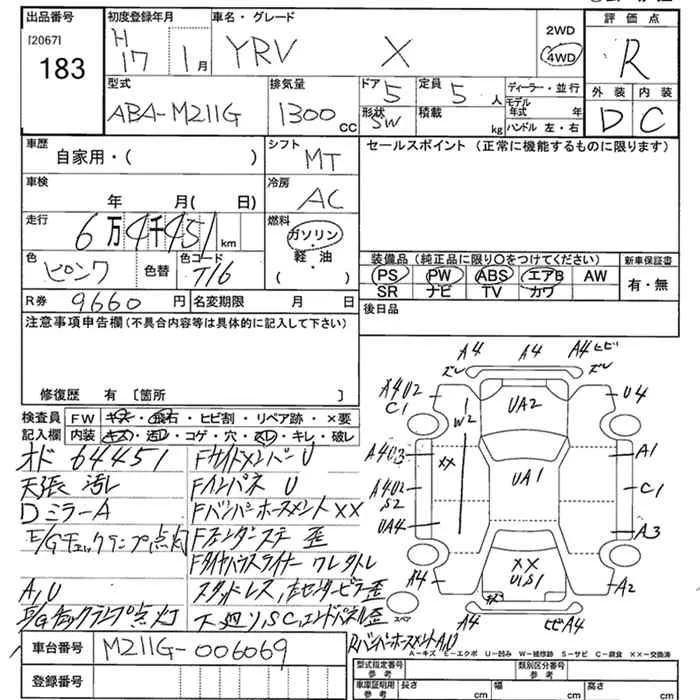 出品番号
[2067]
183
初度登録年月
H
17 1月
車名・グレード
YRV X
2WD
4WD
評価点
R
外装 内装
D C
型式
ABA-M211G
排気量
1300 CC
ドア 5
形状 SW
定員 5 人
積載 kg
ディーラー・並行
モデル年式 年
ハンドル 左・右
車歴
自家用・( )
シフト
MT
セールスポイント(正常に機能するものに限ります)
車検
年 月( 日)
冷房
AC
走行
6万4千451km
燃料
ガソリン・
軽・油
( )
色
ピンク
色替
色コード
T16
装備品(純正品に限り○をつけてください)
PS PW ABS エアB AW
SR ナビ TV カワ
新車保証書
有・無
R券
9660 円
名変期限 月 日
後日品
注意事項申告欄(不具合内容等は具体的に記入して下さい)
修復歴 有 〔箇所 〕
検査員
記入欄
FW キズ・飛石・ヒビ割・リペア跡・×要
内装 キズ・汚レ・コゲ・穴・スレ・キレ・破レ
オド 64451
天張汚レ
DミラーA
E/Gチェックランプ点灯
A,U
E/Gチェックランプ点灯
FサイドメンバーU
Fインパネ U
Fバンパーホースメント××
Fフェンダーステー 歪
Fタイヤハウスライナー ワレ タトレ
スタッドレス,左センターピラー歪
下廻り,SC,エンドパネル歪
A4 A4 A4 ヒビ
ズレ ズレ
A4U2
C1
W2
UA2
U4
A4U3
××
UA1
A1
A4U2
S2
C1
UA4
A3
××
U1S1
A4
A2
スペア
A4 ヒビA4
RバンパーホースメントA,U
A-キズ E-エクボ U-凹み W-補修跡 S-サビ C-腐食 ××-交換済
車台番号
M211G-006069
登録番号
型式指定番号
参考
類別区分番号
参考
車庫証明用
参考
長さ cm
幅 cm
高さ cm